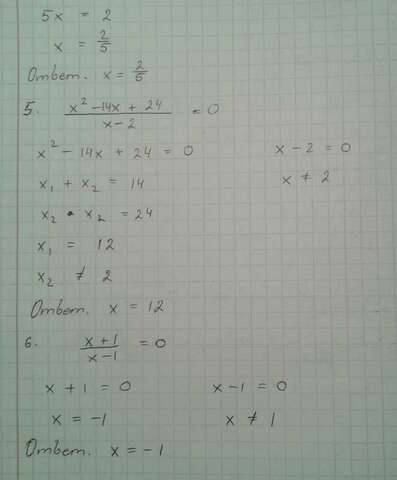 5x = 2
x = 2/5
Ответ. x = 2/5
5. (x² -14x + 24)/(x-2) = 0
x² - 14x + 24 = 0 x - 2 = 0
x₁ + x₂ = 14 x ≠ 2
x₂ • x₂ = 24
x₁ = 12
x₂ ≠ 2
Ответ. x = 12
6. (x+1)/(x-1) = 0
x + 1 = 0 x - 1 = 0
x = -1 x ≠ 1
Ответ. x = -1